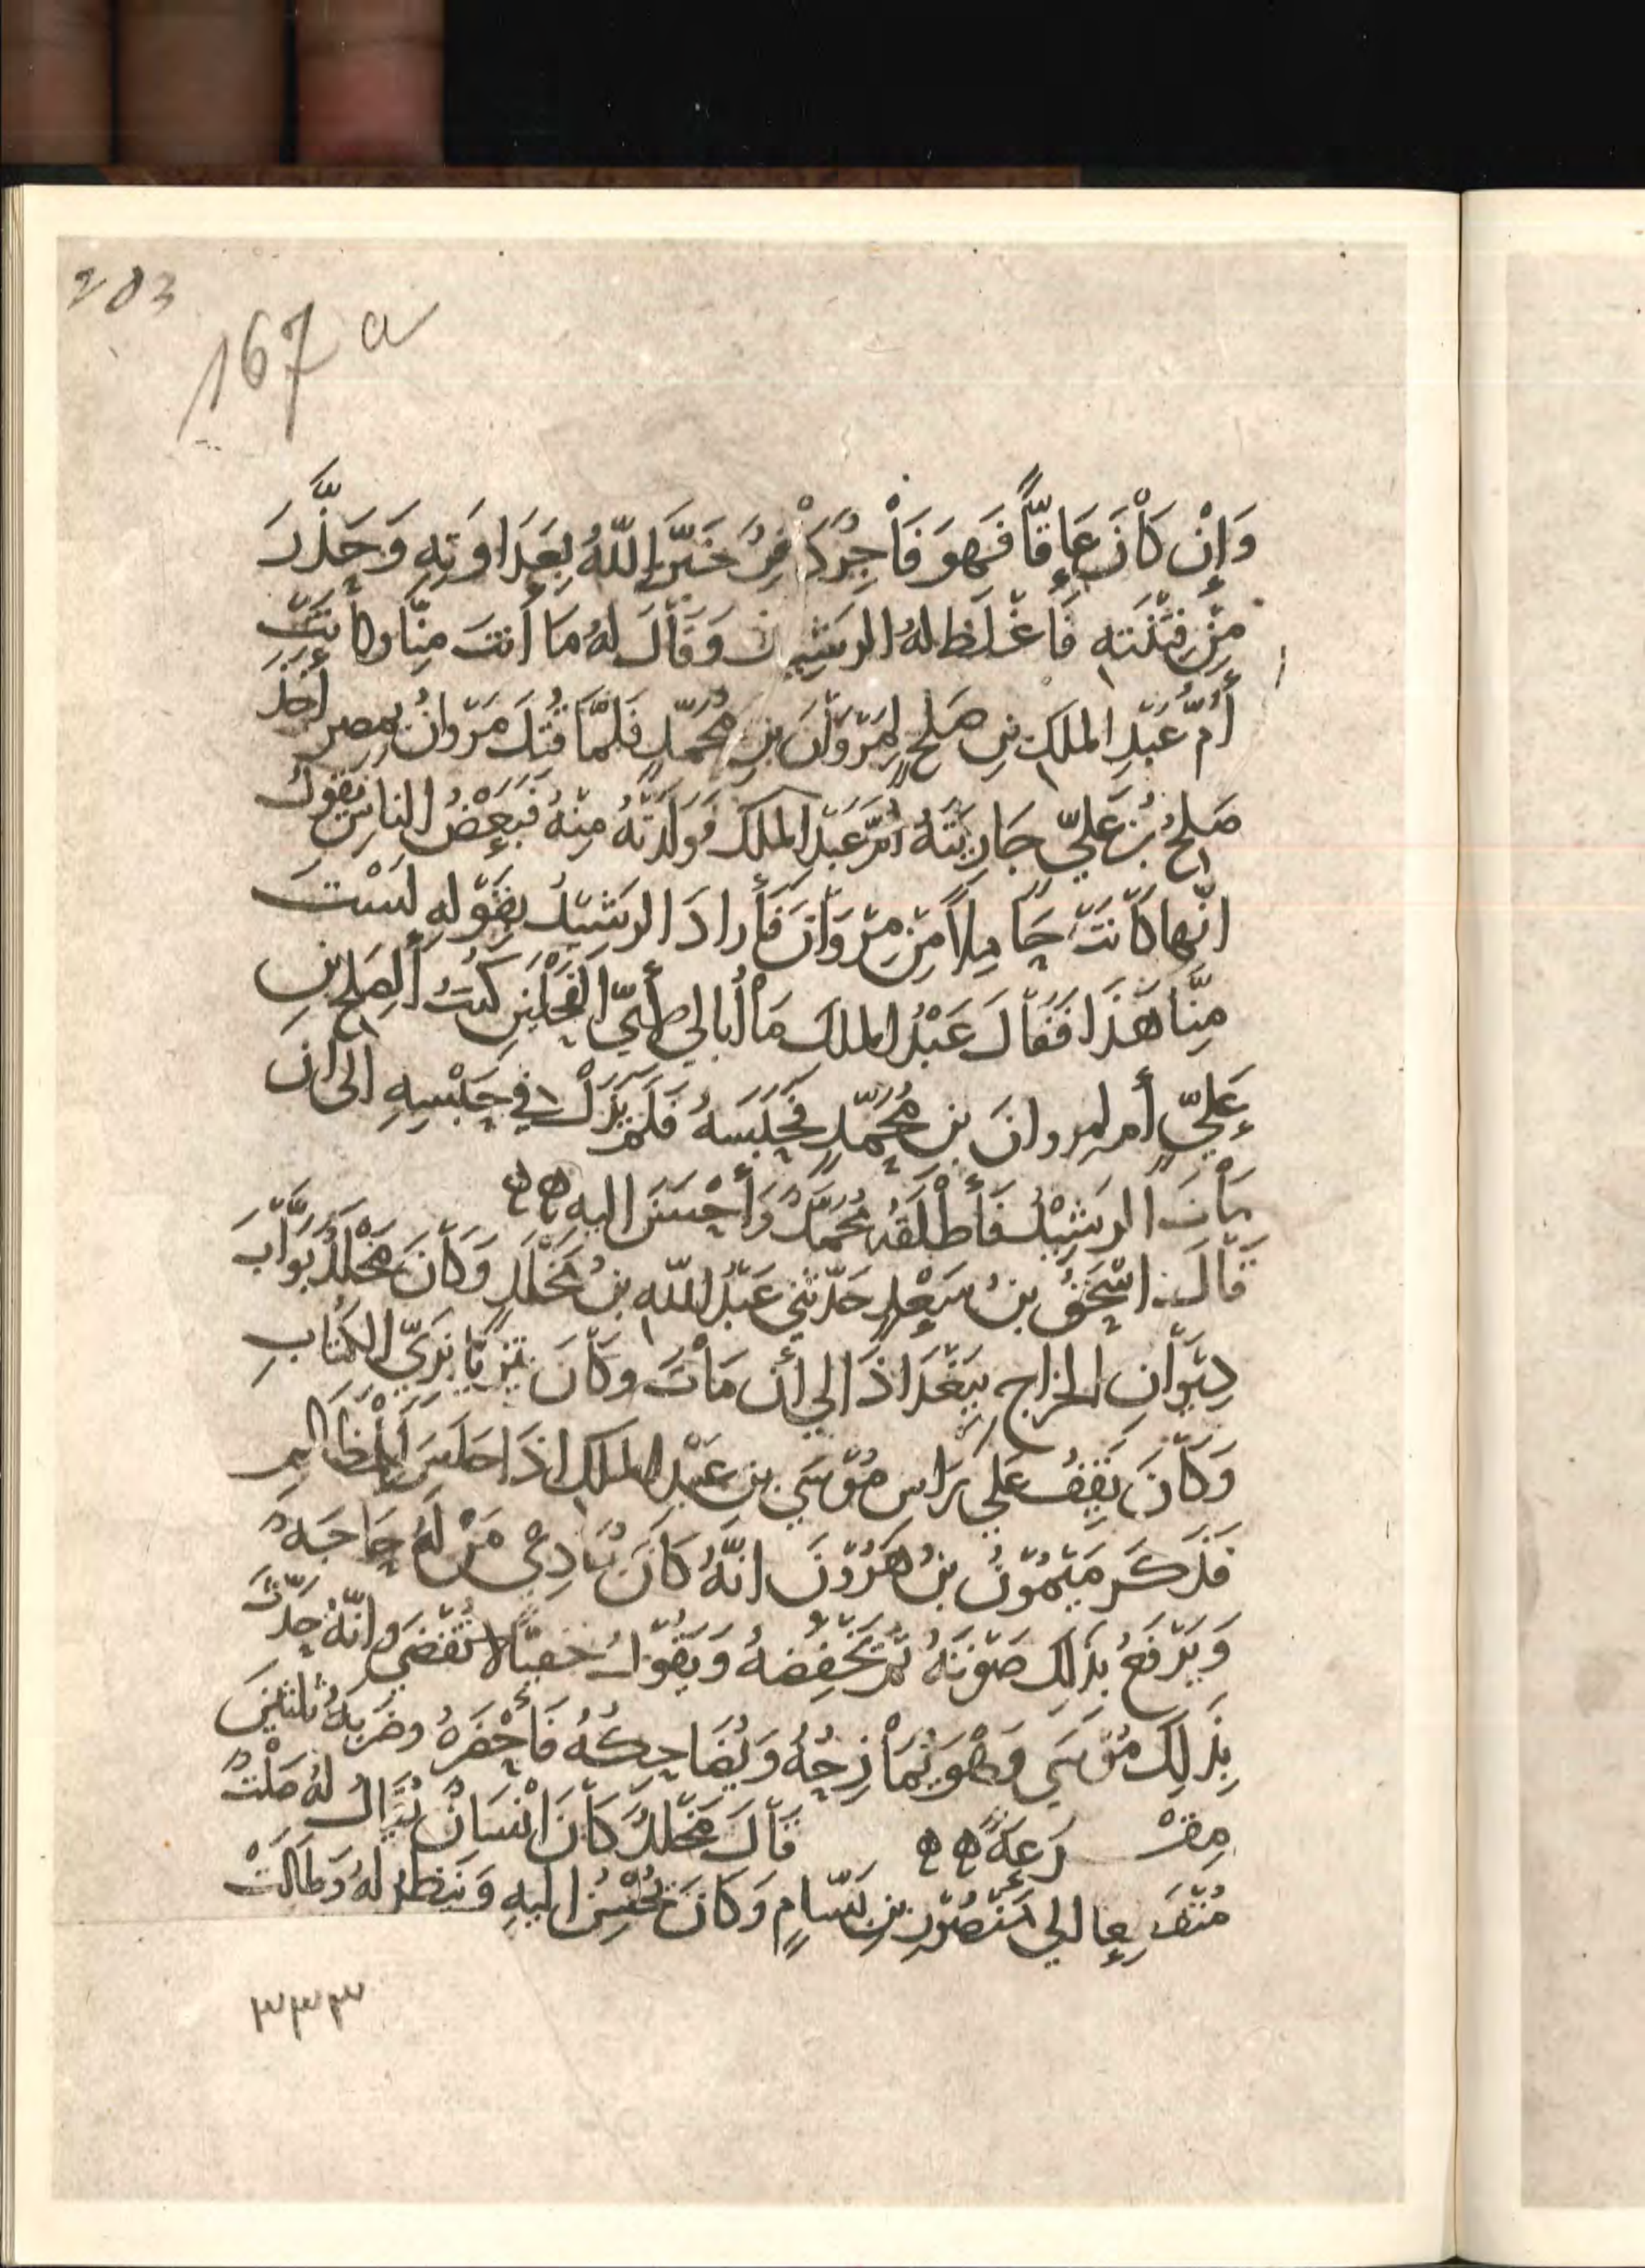 203
167 a
وَإِنْ كَانَ عَاقًّا فَهوَ فَاجِرٌ كَافِرٌ خَبَّرَ اللّهُ بِعَدَاوَتِهِ وَحَذَّرَ
مِنْ فِتْنَتهِ فَأَغْلَظَ لهُ الرشِيد وَقَالَ لهُ مَا أَنتَ مِنَّا وكَانَتْ
أُمُّ عَبْدِ الملكِ بنِ صَلحٍ لِمَرْوَانَ بنِ مُحَمَّدٍ فَلَمَّا قُتِلَ مَرْوانُ بِمصر أخذ
صَلحُ بْنُ عَليٍّ جَارِيَتَهُ أُمَّ عَبْدِ الملك فَولَدَتْهُ مِنْهُ فَبَعْضُ الناسِ يَقولُ
انّها كَانَتْ حَامِلًا مِنْ مرْوَانَ فَأَرادَ الرشِيْدُ بِقَوْلهِ لَسْتَ
مِنَّا هَذَا فَقَالَ عَبْدُ الملك مَا أُبالي أَيّ الفَحْلَيْنِ كنتُ أَلِصَلحِ بنِ
عَليٍّ أم لمروانَ بن مُحَمَّدٍ فَحَبَسَهُ فَلَمْ يَزَلْ في حَبْسِهِ الى ان
مَاتَ الرشِيْدُ فَأَطْلَقَهُ مُحَمَّدٌ وَأَحْسَنَ اليه هه
قَالَ اسْحَقُ بنُ سَعْدٍ حَدَّثَنِي عَبْدُ اللّهِ بنُ مَخْلَدٍ وَكَانَ مَخْلَدٌ بَوَّابَ
دِيْوَانِ الخراج بِبَغْدَاذَ الي أن مَاتَ وكَانَ يَتزيَّا بزيِّ الكُتّابِ
وَكَانَ يَقِفُ عَلي رَاسِ مُوْسَي بن عَبْدِ الملك اذَا جَلَسَ لِلْمَظَالِمِ
فَذَكَرَ مَيْمُوْنُ بنُ هَرُوْنَ انَّهُ كَانَ يُنَادِي مَنْ لَهُ حَاجَهٌ
وَيَرْفَعُ بِذَلِكَ صَوْتَهُ ثُمَّ يَخْفِضُهُ وَيَقُوْلُ خفيًّا لا تُقْضَى وانّهُ حَدَّثَ
بِذَلِكَ مُوْسَي وَهْوَ يُمَازِحُهُ وَيُضَاحِكُهُ فَأَحْضَرَهُ وضَرَبَهُ ثلثينَ
مِقْرَعَةً هه قَالَ مَخْلَدٌ كَانَ انْسَانٌ يُقَالُ لهُ صَلْتٌ
مُنْقَطِعا الي مَنْصُوْرِ بنِ بَسَّامٍ وَكَانَ يُحْسِنُ اليهِ وَيَنظرُ لهُ وَطَالَتْ
٣٣٣